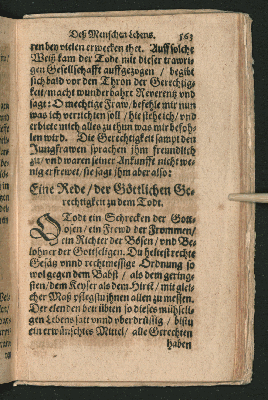 Deß Menschen Lebens. 563
ren bey vielen erwecken thet. Auff solche
Weiß kam der Todt mit dieser trawri-
gen Gesellschafft auffgezogen / begibt
sich bald vor den Thron der Gerechtig-
keit / macht wunderbahre Reverentz vnd
sagt: O mechtige Fraw / befehle mir nun
was ich verrichten soll / hie stehe ich / vnd
erbiete mich alles zu thun was mir befoh-
len wird. Die Gerechtigkeit sampt den
Jungfrawen sprachen ihm freundlich
zu / vnd waren seiner Ankunfft nicht we-
nig erfrewet / sie sagt jhm aber also:
Eine Rede / der Göttlichen Ge-
rechtigkeit zu dem Todt.
O Todt ein Schrecken der Gott-
losen / ein Frewd der Frommen /
ein Richter der Bösen / vnd Be-
lohner der Gottseligen. Du heltest rechte
Gesäg vnnd rechtmessige Ordnung so
wol gegen dem Babst / als dem gerings-
sten / dem Keyser als dem Hirst / mit glei-
cher Maß pflegstu jhnen allen zu messen.
Der elenden betrübten so dieses mühseli-
gen Lebens satt vnnd vberdrüssig / bistu
ein erwünschtes Mittel / alle Gerechten
haben